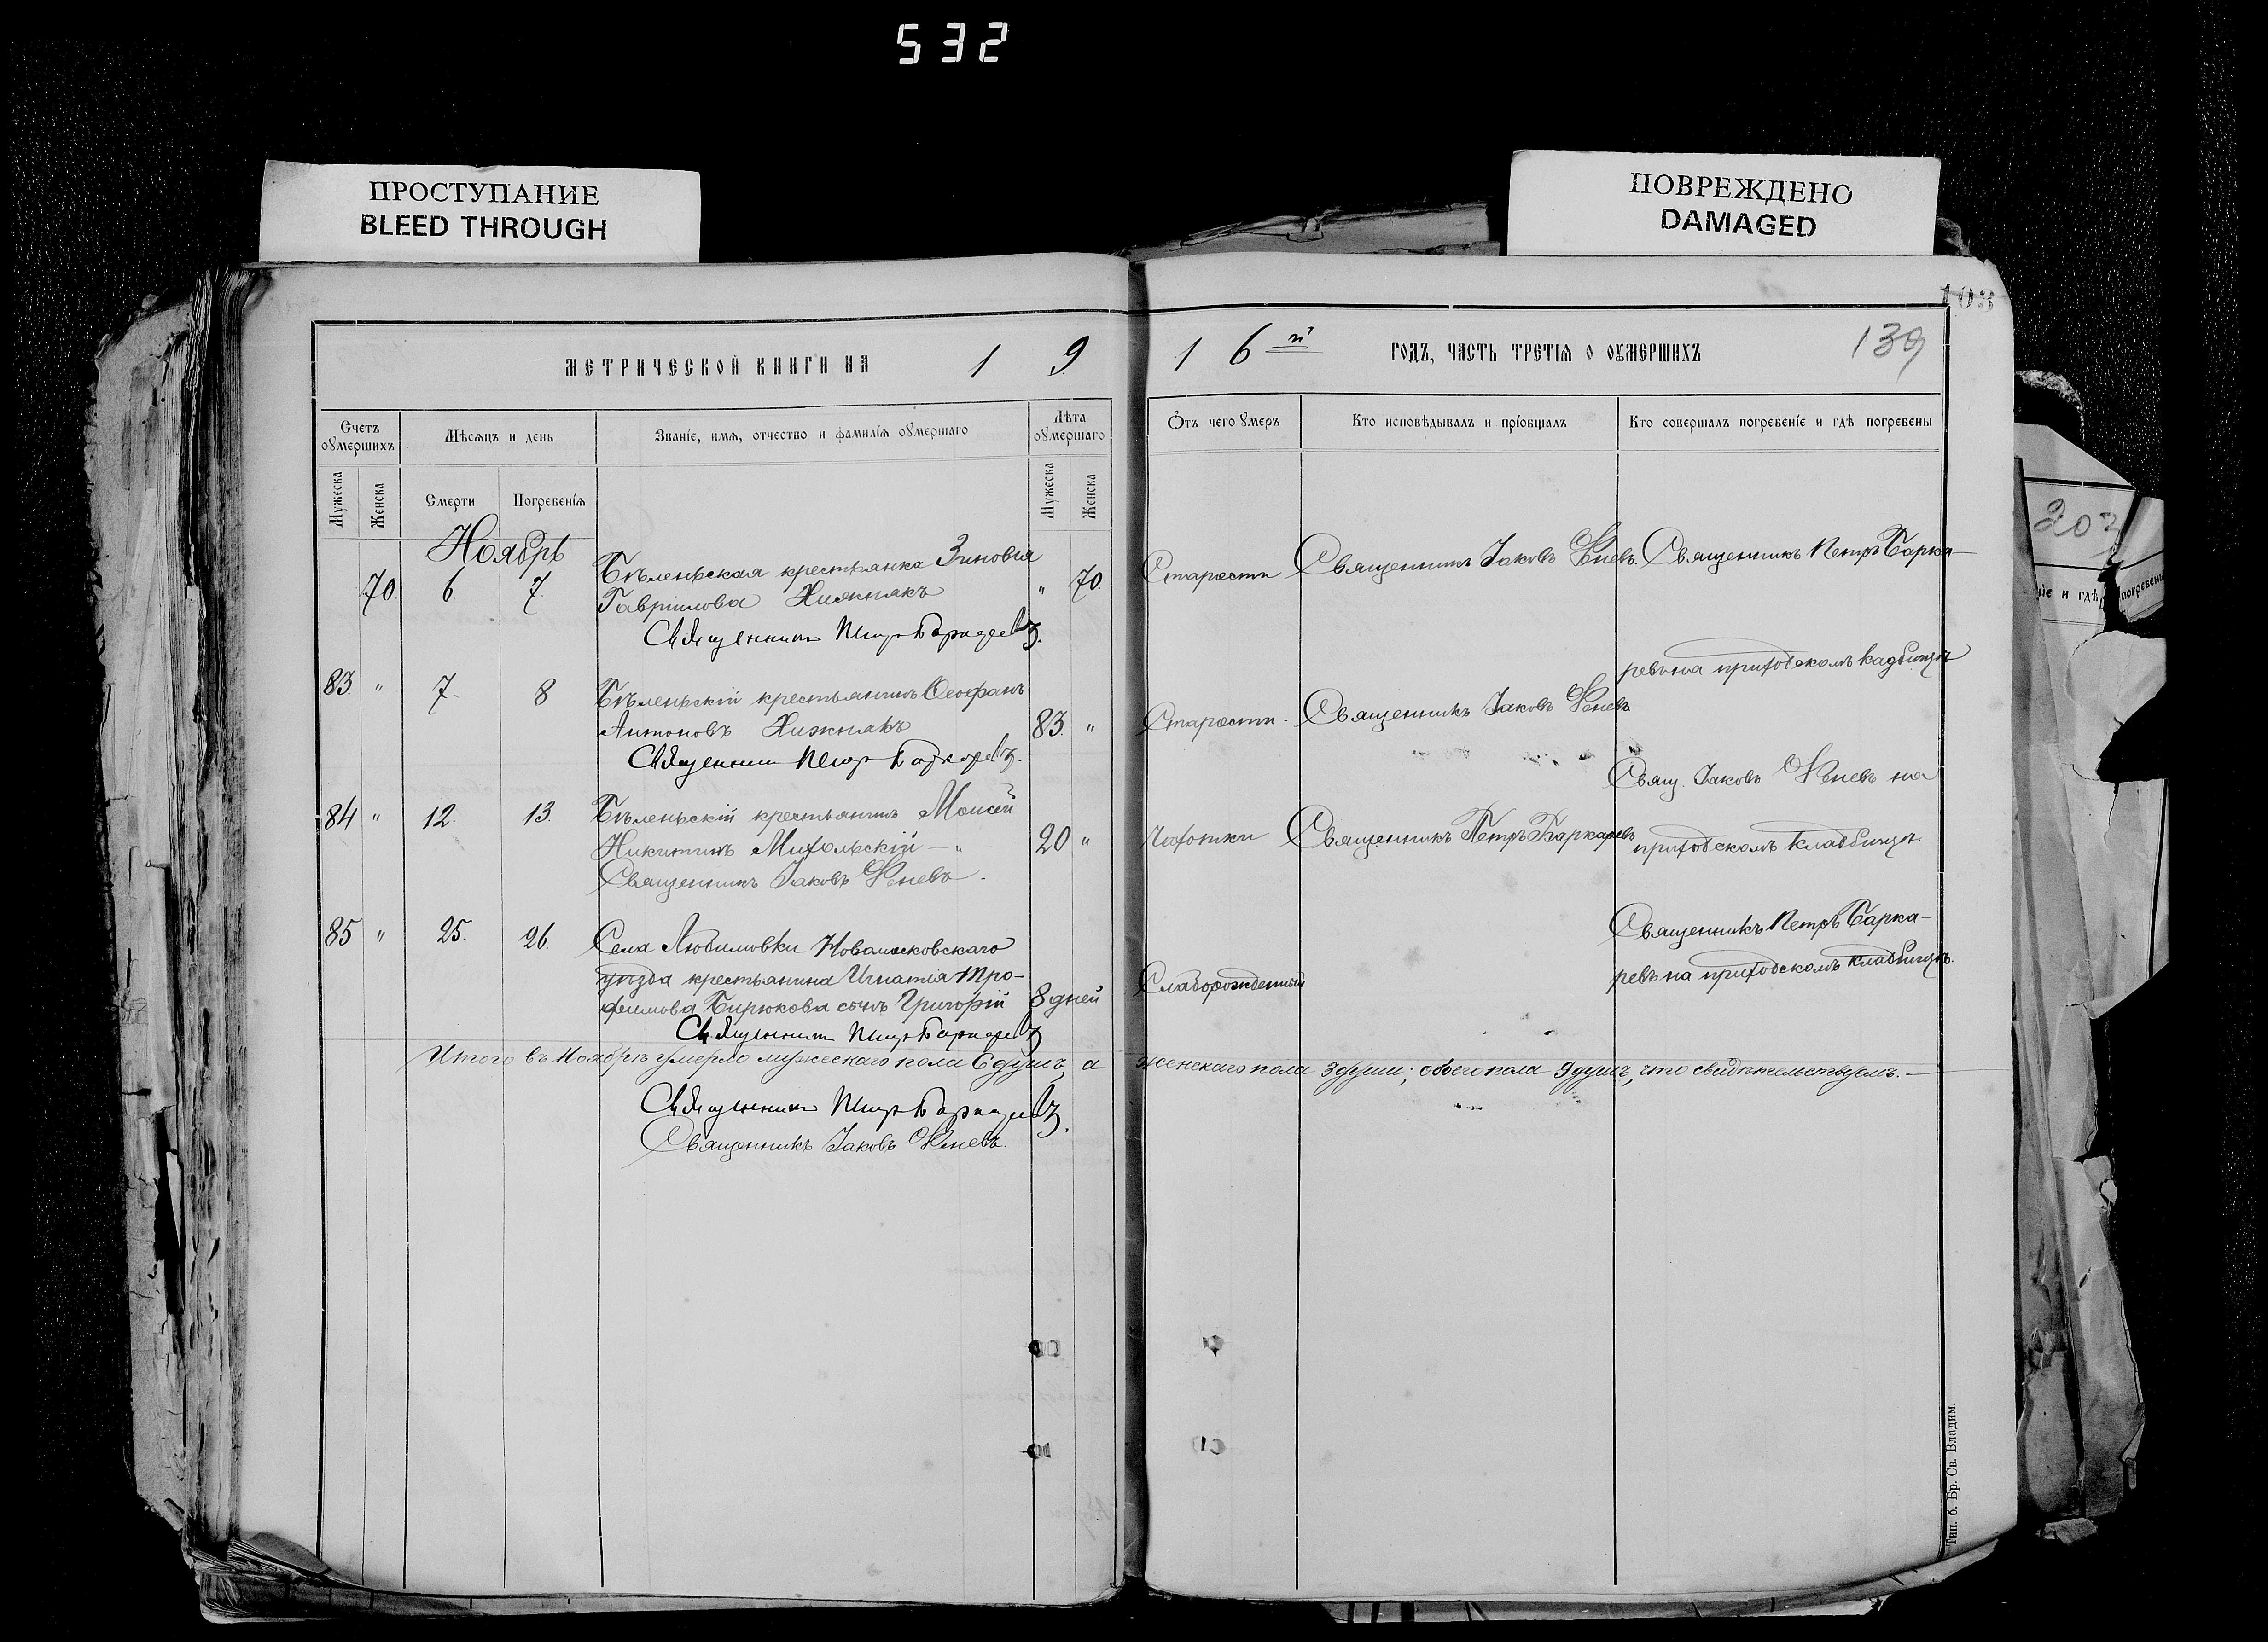 532
ПРОСТУПАНИЕ
BLEED THROUGH
ПОВРЕЖДЕНО
DAMAGED
103
МЕТРИЧЕСКОЙ КНИГИ НА 1 9
1 6 й ГОДЪ, ЧАСТЬ ТРЕТІЯ О ОУМЕРШИХЪ
139
Счетъ оумершихъ
Мѣсяцъ и день
Званіе, имя, отчество и фамилія оумершаго
Лѣта оумершаго
Отъ чего умеръ
Кто исповѣдывалъ и пріобщалъ
Кто совершалъ погребеніе и гдѣ погребены
Мужеска
Женска
Смерти
Погребенія
Мужеска
Женска
203
Ноябрь
70. 6. 7. Бѣленьская крестьянка Зиновія
Гавріилова Хижнякъ " 70. Старости Священникъ Іаковъ Священникъ Петръ Барка-
Священникъ Петръ Баркаревъ.
ревъ на приходскомъ кадбищѣ
83. " 7. 8 Бѣленьскій крестьянинъ Ѳеофанъ
Антоновъ Хижнякъ 83. " Старости. Священникъ Іаковъ
Священникъ Петръ Баркаревъ.
Свящ. Іаковъ на
84 " 12. 13. Бѣленьскій крестьянинъ Моисей
Никитинъ Михольскій — " 20 " Чахотки Священникъ Петръ Баркаревъ приходскомъ кладбищѣ.
Священникъ Іаковъ
85 " 25. 26. Села Любимовки Новомосковскаго
Священникъ Петръ Барка-
уѣзда крестьянина Игнатія Тро-
ревъ на приходскомъ кладбищѣ.
фимова Бирюкова сынъ Григорій 8 дней Слаборожденный
Священникъ Петръ Баркаревъ
Итого въ Ноябрѣ умерло мужескаго пола 6 душъ, а женскаго пола 3 души; обоего пола 9 душъ, что свидѣтельствуемъ.—
Священникъ Петръ Баркаревъ.
Священникъ Іаковъ
Тип. б. Бр. Св. Владим.